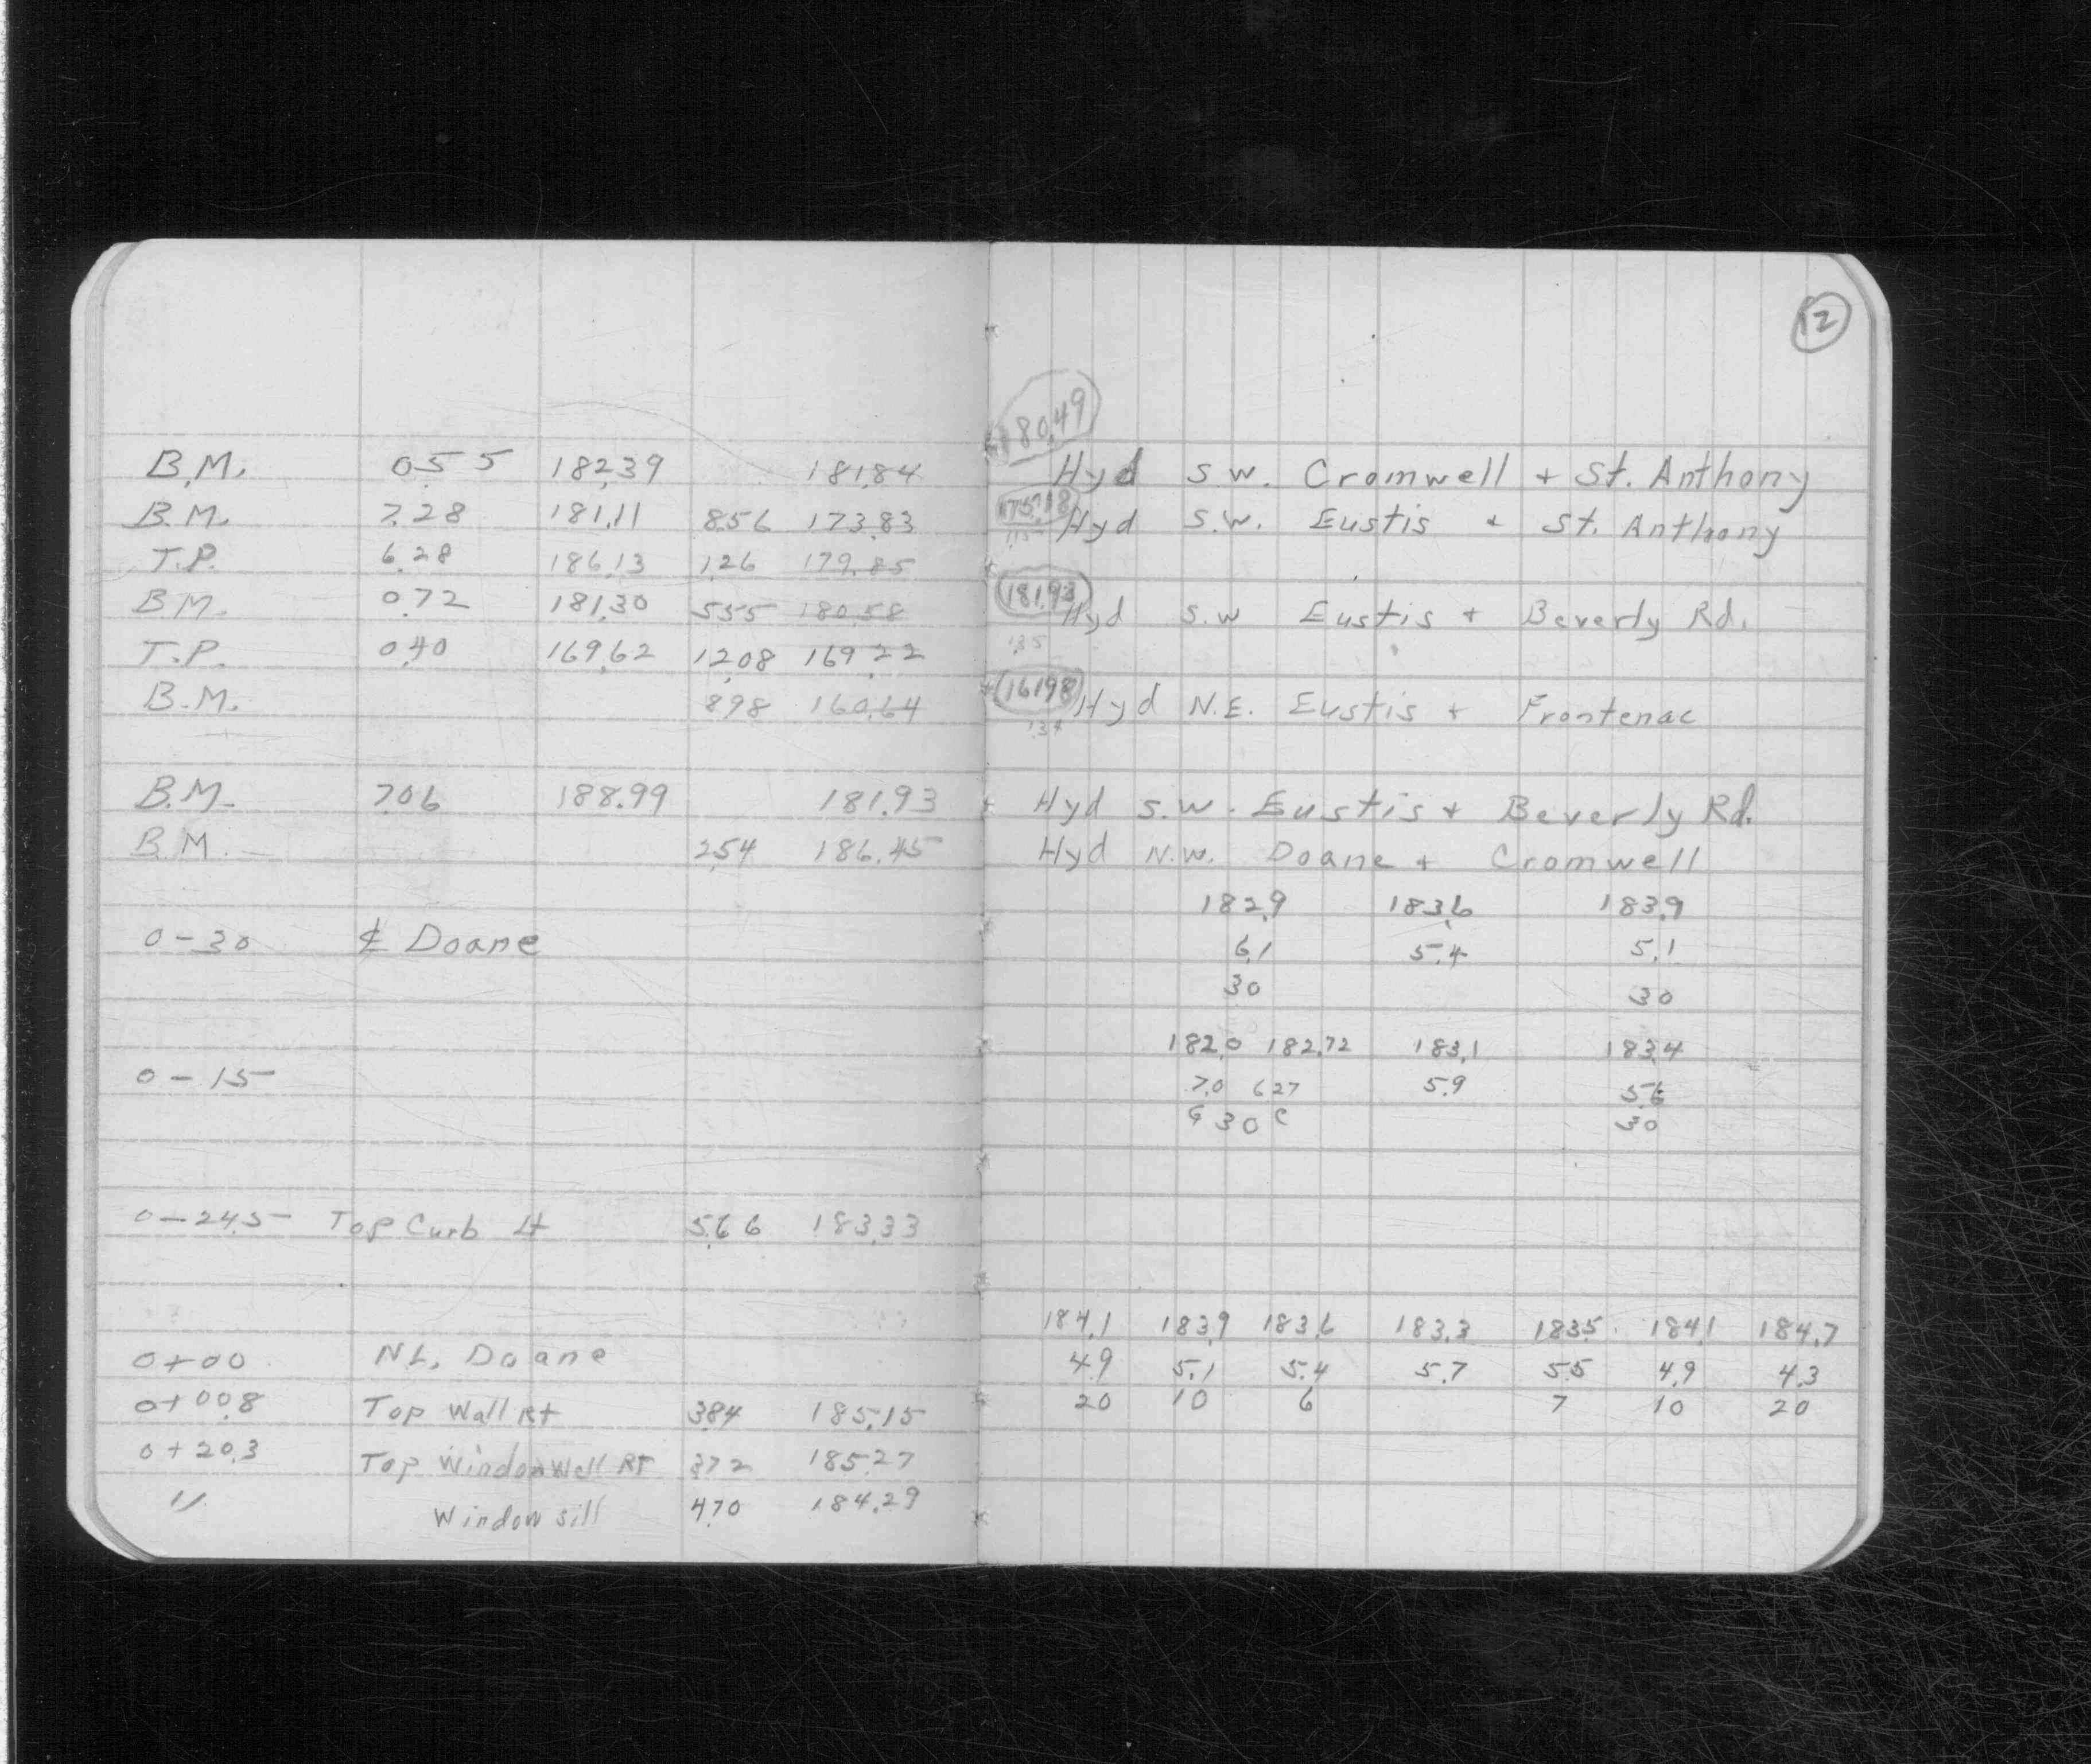 12
180.49
B.M. 0.55 182.39 181.84 Hyd S.W. Cromwell + St. Anthony
175.18
B.M. 7.28 181.11 8.56 173.83 Hyd S.W. Eustis + St. Anthony
T.P. 6.28 186.13 1.26 179.85
181.93
B.M. 0.72 181.30 5.55 180.58 Hyd S.W Eustis + Beverly Rd.
T.P. 0.40 169.62 12.08 169.22
161.98
B.M. 8.98 160.64 Hyd N.E. Eustis + Frontenac
1.34
B.M. 7.06 188.99 181.93 Hyd S.W. Eustis + Beverly Rd.
B.M. 2.54 186.45 Hyd N.W. Doane + Cromwell
182.9 183.6 183.9
0-30 ₵ Doane 6.1 5.4 5.1
30 30
182.0 182.72 183.1 183.4
0-15 7.0 6.27 5.9 5.6
G 30 C 30
0-24.5 Top Curb Lt 5.66 183.33
184.1 183.9 183.6 183.3 183.5 184.1 184.7
0+00 N.L. Doane 4.9 5.1 5.4 5.7 5.5 4.9 4.3
20 10 6 7 10 20
0+00.8 Top Wall Rt 3.84 185.15
0+20.3 Top Window Well RT 3.72 185.27
" Window sill 4.70 184.29